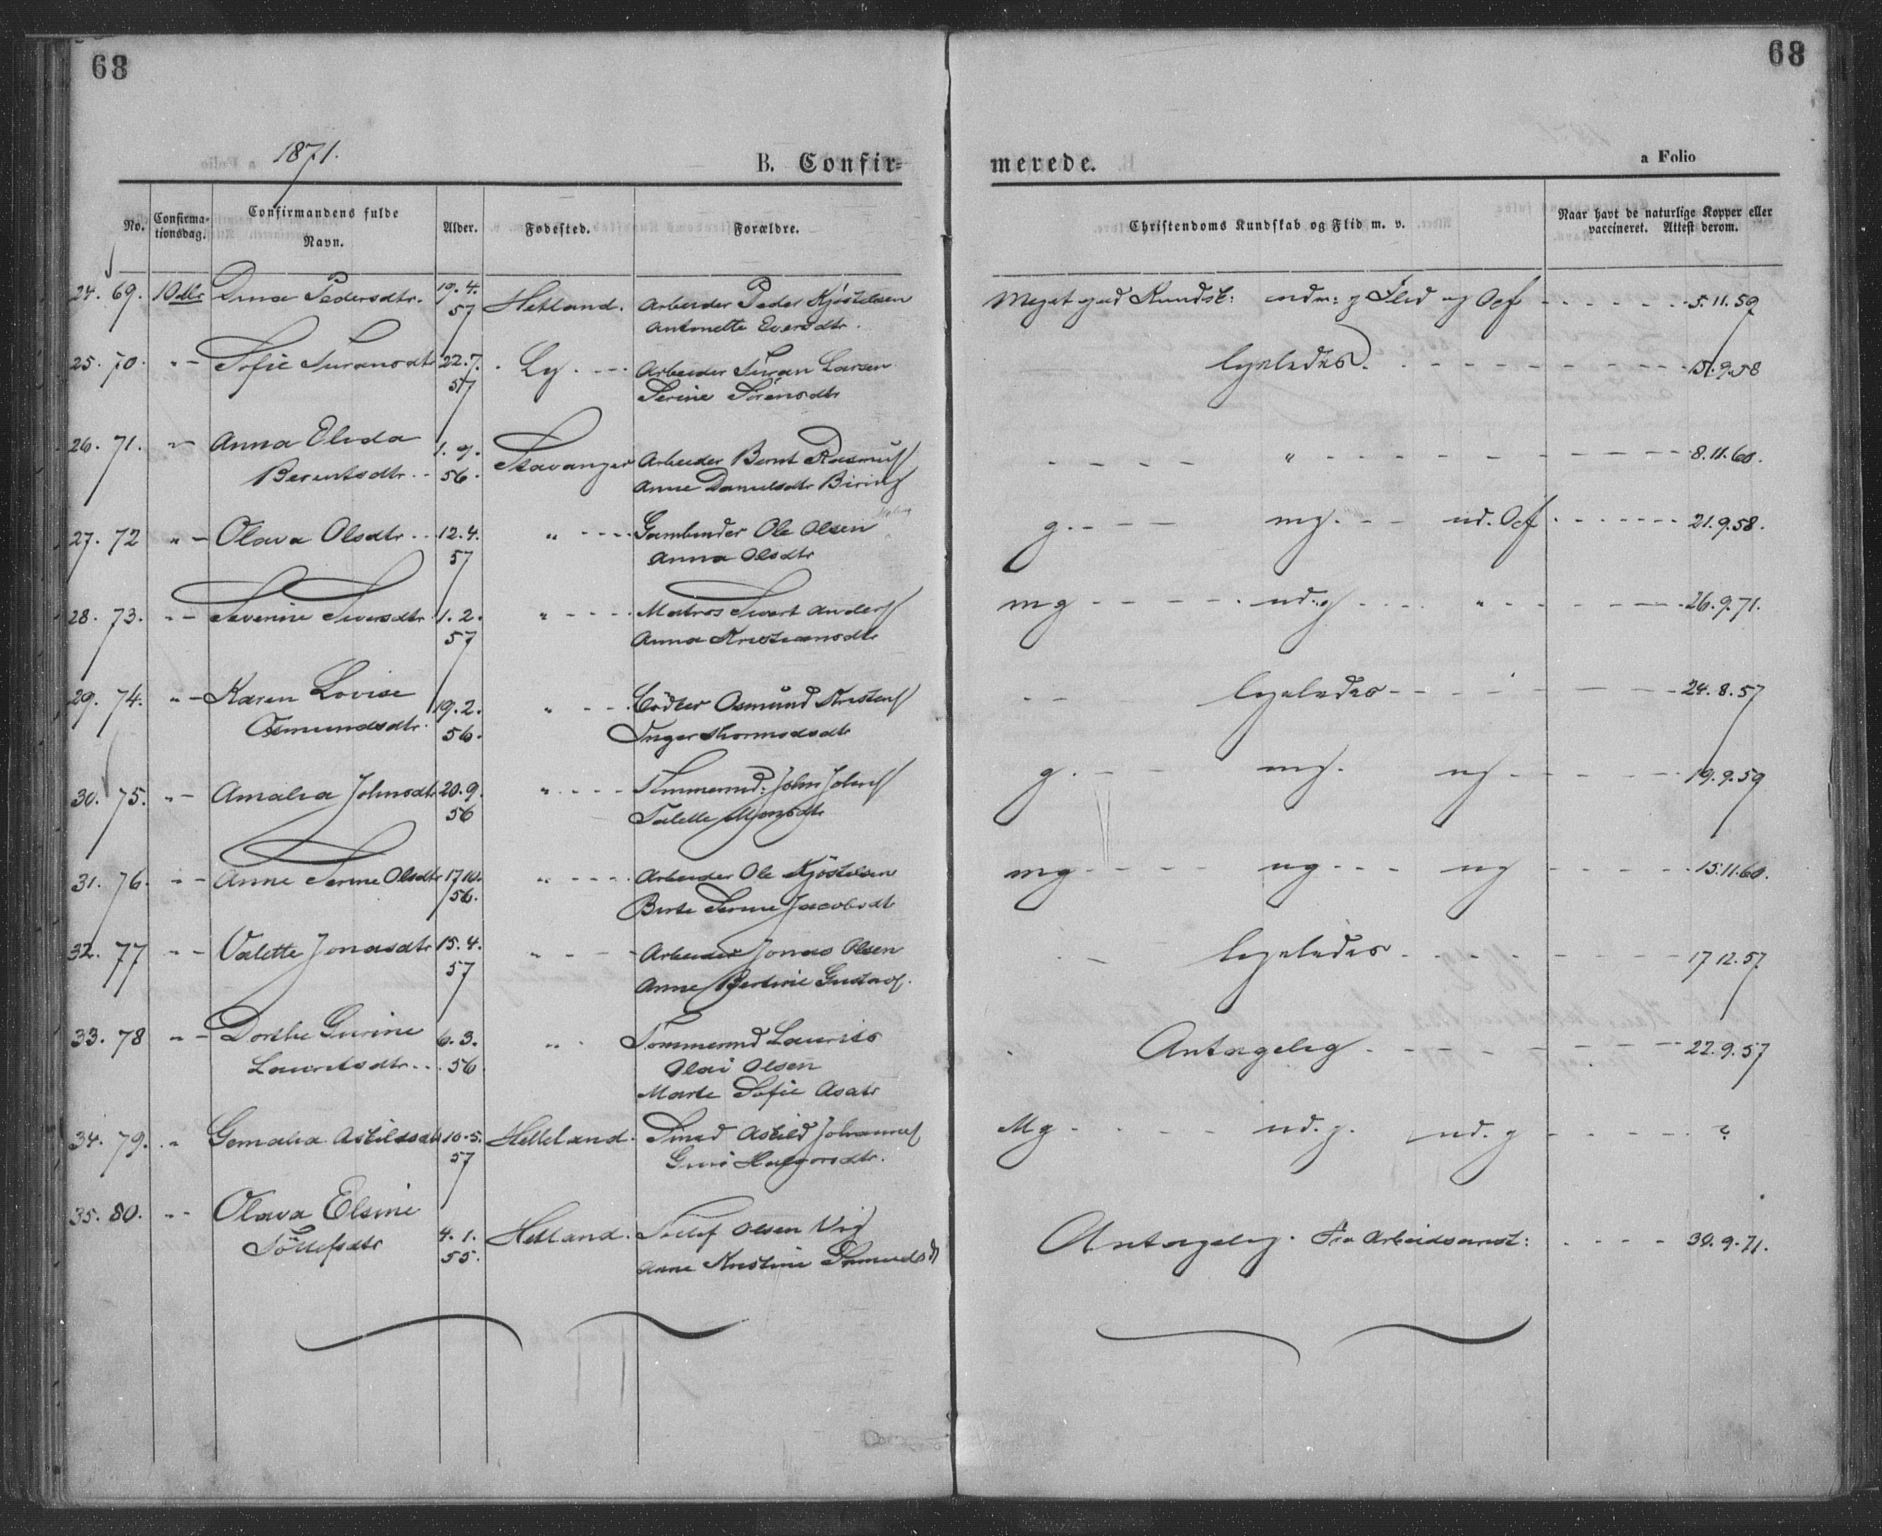 68
68
1871.
a Folio
B. Confir-
merede.
No.
Confirma-
tionsdag.
Confirmandens fulde
Navn.
Alder.
Fødested.
Forældre.
Christendoms Kundskab og Flid m. v.
Naar havt de naturlige Kopper eller
vaccineret. Attest derom.
24. 69. Pedersdtr. 19.4. Hetland. Arbeider Peder Kjøstelsen Meget god Kundsk: udm: g Flid og Opf 5.11.59
57 Antonette Eversdtr.
25. 70. " Sofie 22.7. Ly. Arbeider Larsen ligeledes. 15.9.58
57 Serine Sörensdtr
26. 71. " Anna Elida 1. 9. Stavanger Arbeider Bernt " 8.11.60.
Berentsdtr. 56. Anne Danielsdtr
27. 72 " Olava Olsdtr 12.4. " Ole Olsen g. mg. ud. Opf 21.9.58.
57 Anna Olsdtr
28. 73. " Severine Siversdtr 1. 2. " Matros Sivert mg ud: g " 26.9.71.
57 Anna Kristiansdtr
29. 74. " Karen Lovise 19.2. " Bödker Osmund ligeledes 24.8.57
Osmundsdtr. 56. Inger
30. 75. " Amalia Johnsdtr 20.9. " Tømmermd: John g. mg. ug 19.9.59
56
31. 76. " Anne Serine Olsdtr 17.10. " Arbeider Ole Kjöstelsen mg ug ug 15.11.60.
56. Berte Serine Jacobsdtr
32. 77 " Valette Jonasdtr 15.4. " Arbeider Jonas Olsen ligeledes 17.12.57
57 Anne Bertine
33. 78 " Dorthe Gurine 6.3. " Tömmermd Laurits Antagelig 22.9.57
Lauritsdtr. 56 Olai Olsen
Marte Sofie
34. 79. " 10.5. Helleland. Smed Mg ud. g. ud. g ?
57
35. 80. " Olava Elsine 4. 1. Hetland. Tollef Olsen Antagelig. Fra Arbeidsanst: 30.9.71.
Töllefsdtr 55. Anne Kristine